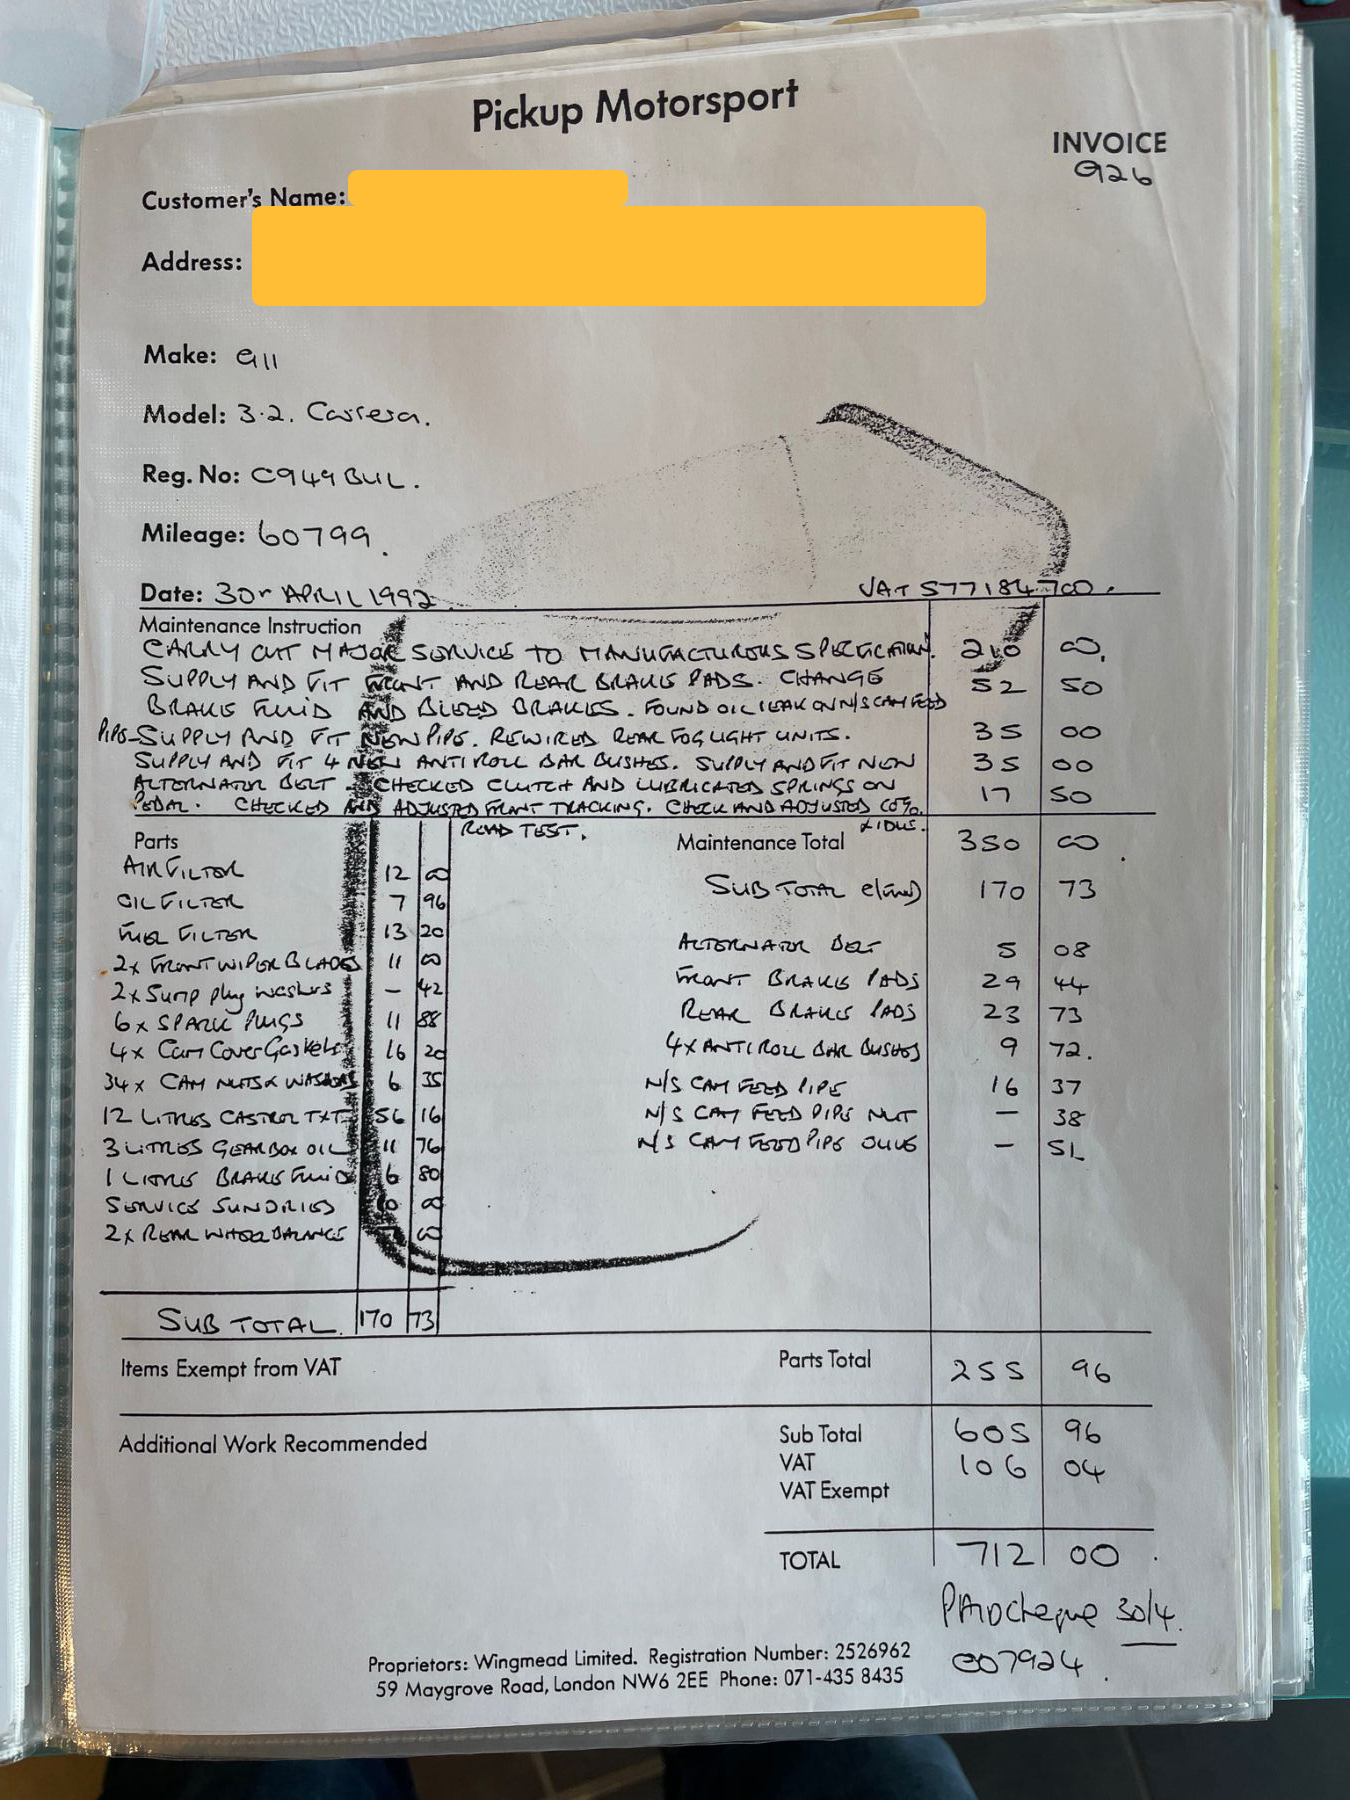 Pickup Motorsport
INVOICE
926
Customer's Name:
Address:
Make: 911
Model: 3.2. Carrera.
Reg. No: C949 BUL.
Mileage: 60799.
Date: 30 APRIL 1992.
VAT 577184700.
Maintenance Instruction
CARRY OUT MAJOR SERVICE TO MANUFACTURERS SPECIFICATION. 210 00.
SUPPLY AND FIT FRONT AND REAR BRAKE PADS. CHANGE 52 50
BRAKE FLUID AND BLEED BRAKES. FOUND OIL LEAK ON N/S CAM FEED
PIPE-SUPPLY AND FIT NEW PIPE. REWIRED REAR FOGLIGHT UNITS. 35 00
SUPPLY AND FIT 4 NEW ANTI ROLL BAR BUSHES. SUPPLY AND FIT NEW 35 00
ALTERNATOR BELT. CHECKED CLUTCH AND LUBRICATED SPRINGS ON 17 50
PEDAL. CHECKED AND ADJUSTED FRONT TRACKING. CHECK AND ADJUSTED CO%
& IDLE.
ROAD TEST.
Maintenance Total 350 00
Parts
AIR FILTER 12 00
OIL FILTER 7 96
FUEL FILTER 13 20
2x FRONT WIPER BLADES 11 00
2x Sump plug washers - 42
6x SPARK PLUGS 11 88
4x Cam Cover Gaskets 16 20
34x CAM NUTS & WASHERS 6 35
12 LITRES CASTROL TXT 56 16
3 LITRES GEARBOX OIL 11 76
1 LITRE BRAKE FLUID 6 80
SERVICE SUNDRIES 00
2x REAR WHEEL BALANCE 00
SUB TOTAL. 170 73
SUB TOTAL 170 73
ALTERNATOR BELT 5 08
FRONT BRAKE PADS 29 44
REAR BRAKE PADS 23 73
4x ANTIROLL BAR BUSHES 9 72.
N/S CAM FEED PIPE 16 37
N/S CAM FEED PIPE NUT - 38
N/S CAM FEED PIPE OLIVE - 51
Items Exempt from VAT
Parts Total 255 96
Additional Work Recommended
Sub Total 605 96
VAT 106 04
VAT Exempt
TOTAL 712 00
PAID Cheque 30/4.
007924.
Proprietors: Wingmead Limited. Registration Number: 2526962
59 Maygrove Road, London NW6 2EE Phone: 071-435 8435